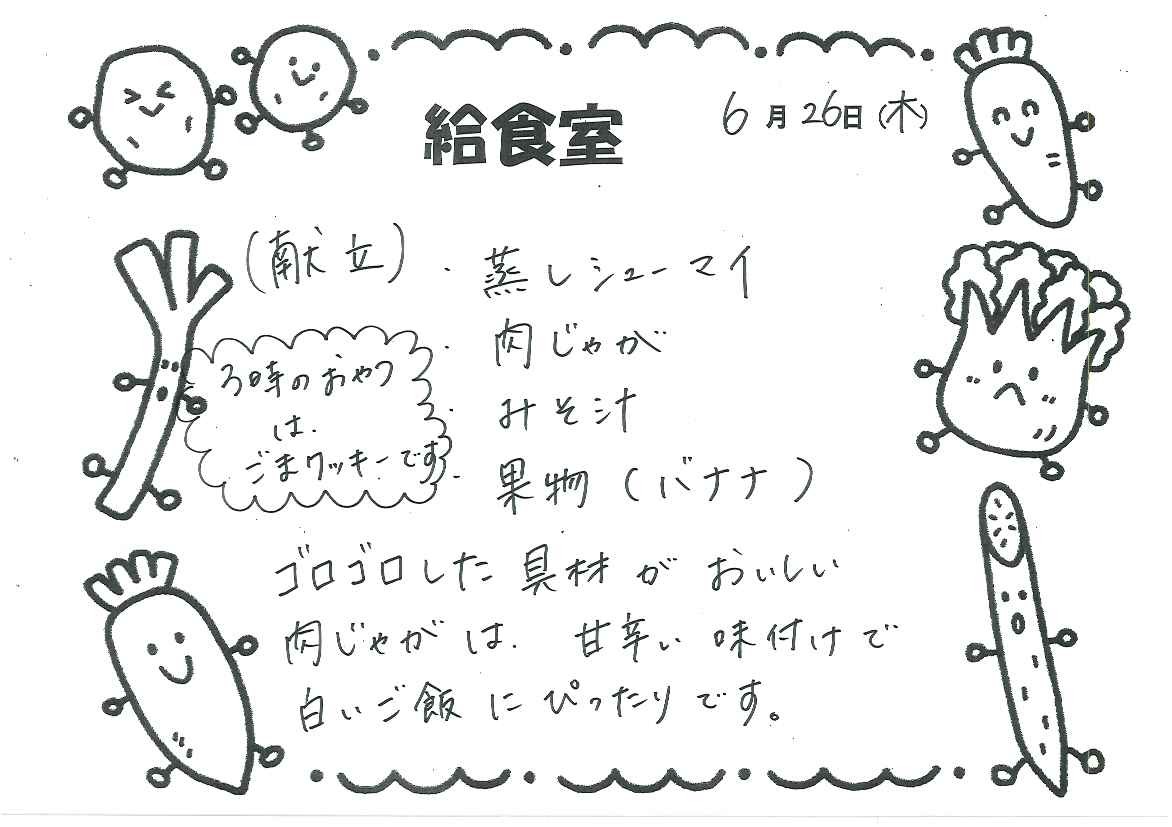 給食室
6月26日(木)
(献立)
・蒸しシューマイ
・肉じゃが
・みそ汁
・果物(バナナ)
3時のおやつ
は、
ごまクッキーです
ゴロゴロした具材がおいしい
肉じゃがは、甘辛い味付けで
白いご飯にぴったりです。